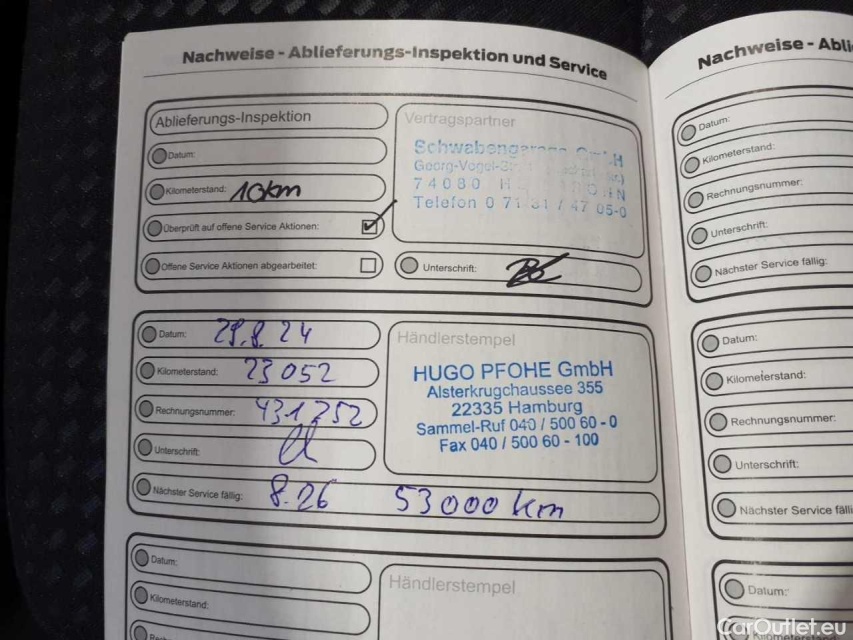 Nachweise - Ablieferungs-Inspektion und Service
Ablieferungs-Inspektion
Datum:
Kilometerstand: 10km
Überprüft auf offene Service Aktionen:
Offene Service Aktionen abgearbeitet:
Vertragspartner
GmbH
Georg-Vogel-
74080
Telefon 0 71 31 / 47 05-0
Unterschrift:
Datum: 29.8.24
Kilometerstand: 23052
Rechnungsnummer: 431252
Unterschrift:
Nächster Service fällig: 8.26 53000 km
Händlerstempel
HUGO PFOHE GmbH
Alsterkrugchaussee 355
22335 Hamburg
Sammel-Ruf 040 / 500 60 - 0
Fax 040 / 500 60 - 100
Datum:
Kilometerstand:
Händlerstempel
Nachweise - Abli
Datum:
Kilometerstand:
Rechnungsnummer:
Unterschrift:
Nächster Service fällig:
Datum:
Kilometerstand:
Rechnungsnummer:
Unterschrift:
Nächster Service fälli
Datum:
Kilometerstand:
CarOutlet.eu